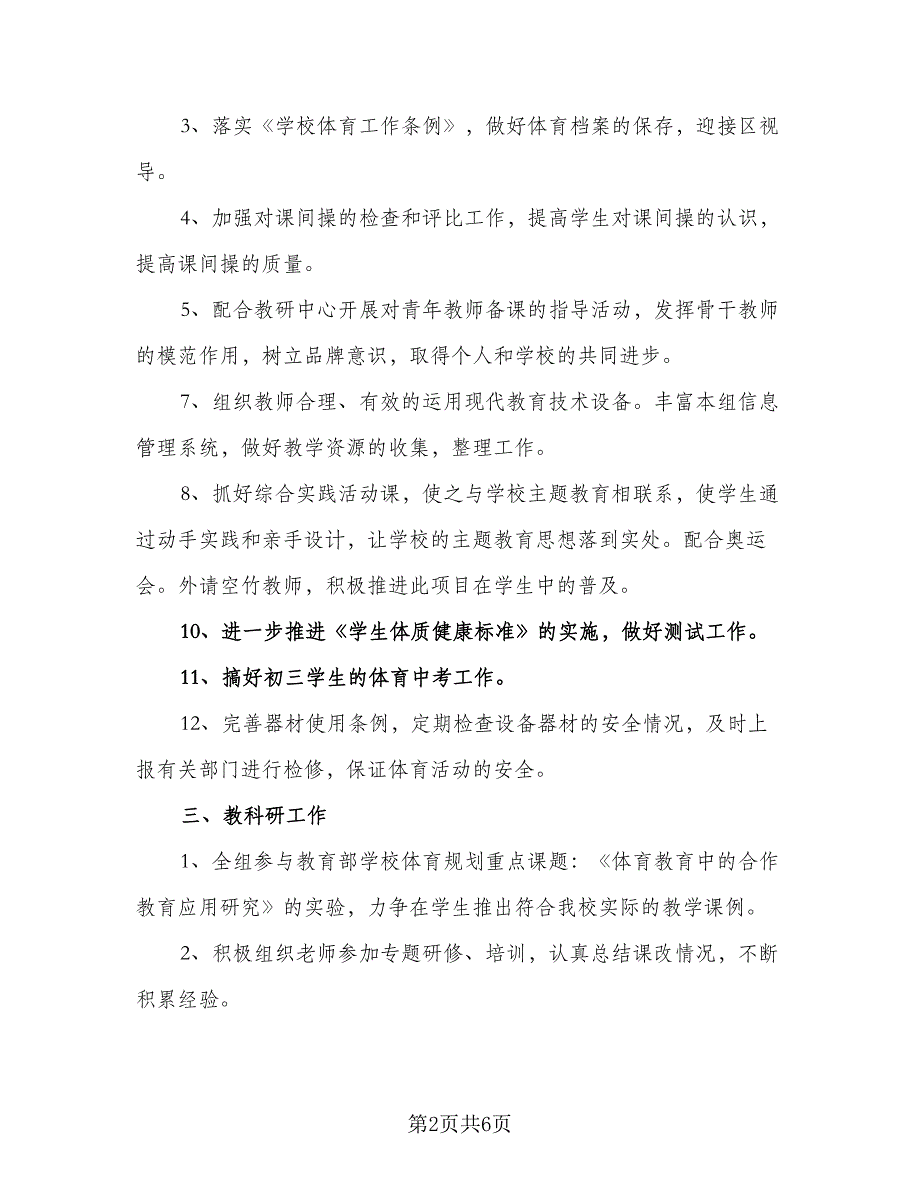 3、落实《学校体育工作条例》，做好体育档案的保存，迎接区视
导。
4、加强对课间操的检查和评比工作，提高学生对课间操的认识，
提高课间操的质量。
5、配合教研中心开展对青年教师备课的指导活动，发挥骨干教师
的模范作用，树立品牌意识，取得个人和学校的共同进步。
7、组织教师合理、有效的运用现代教育技术设备。丰富本组信息
管理系统，做好教学资源的收集，整理工作。
8、抓好综合实践活动课，使之与学校主题教育相联系，使学生通
过动手实践和亲手设计，让学校的主题教育思想落到实处。配合奥运
会。外请空竹教师，积极推进此项目在学生中的普及。
10、进一步推进《学生体质健康标准》的实施，做好测试工作。
11、搞好初三学生的体育中考工作。
12、完善器材使用条例，定期检查设备器材的安全情况，及时上
报有关部门进行检修，保证体育活动的安全。
三、教科研工作
1、全组参与教育部学校体育规划重点课题：《体育教育中的合作
教育应用研究》的实验，力争在学生推出符合我校实际的教学课例。
2、积极组织老师参加专题研修、培训，认真总结课改情况，不断
积累经验。
第2页共6页